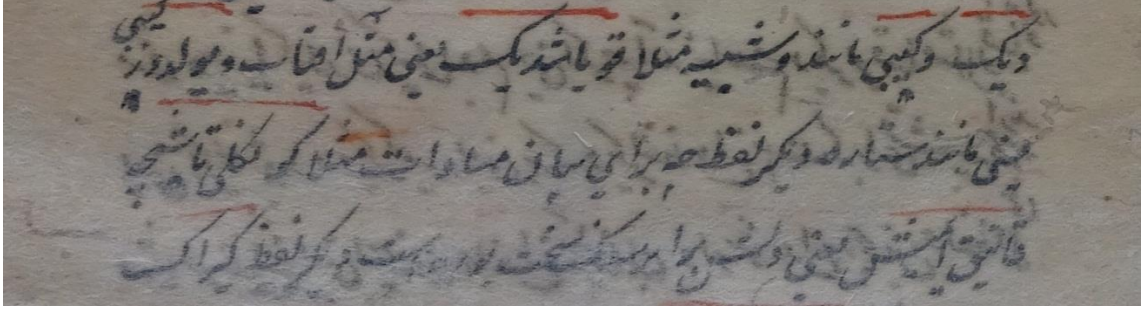 دیک و کیبی مانند و شبیه مثلا قویاشدیک یعنی مثل افتاب و یولدوز کیبی
یعنی مانند ستاره دیکر لفظ جه برای بیان مساوات مثلا کونکلی تاشجه
قاتیق ایمیش یعنی دلش برابر سنک سخت بوده است دیکر لفظ کراک